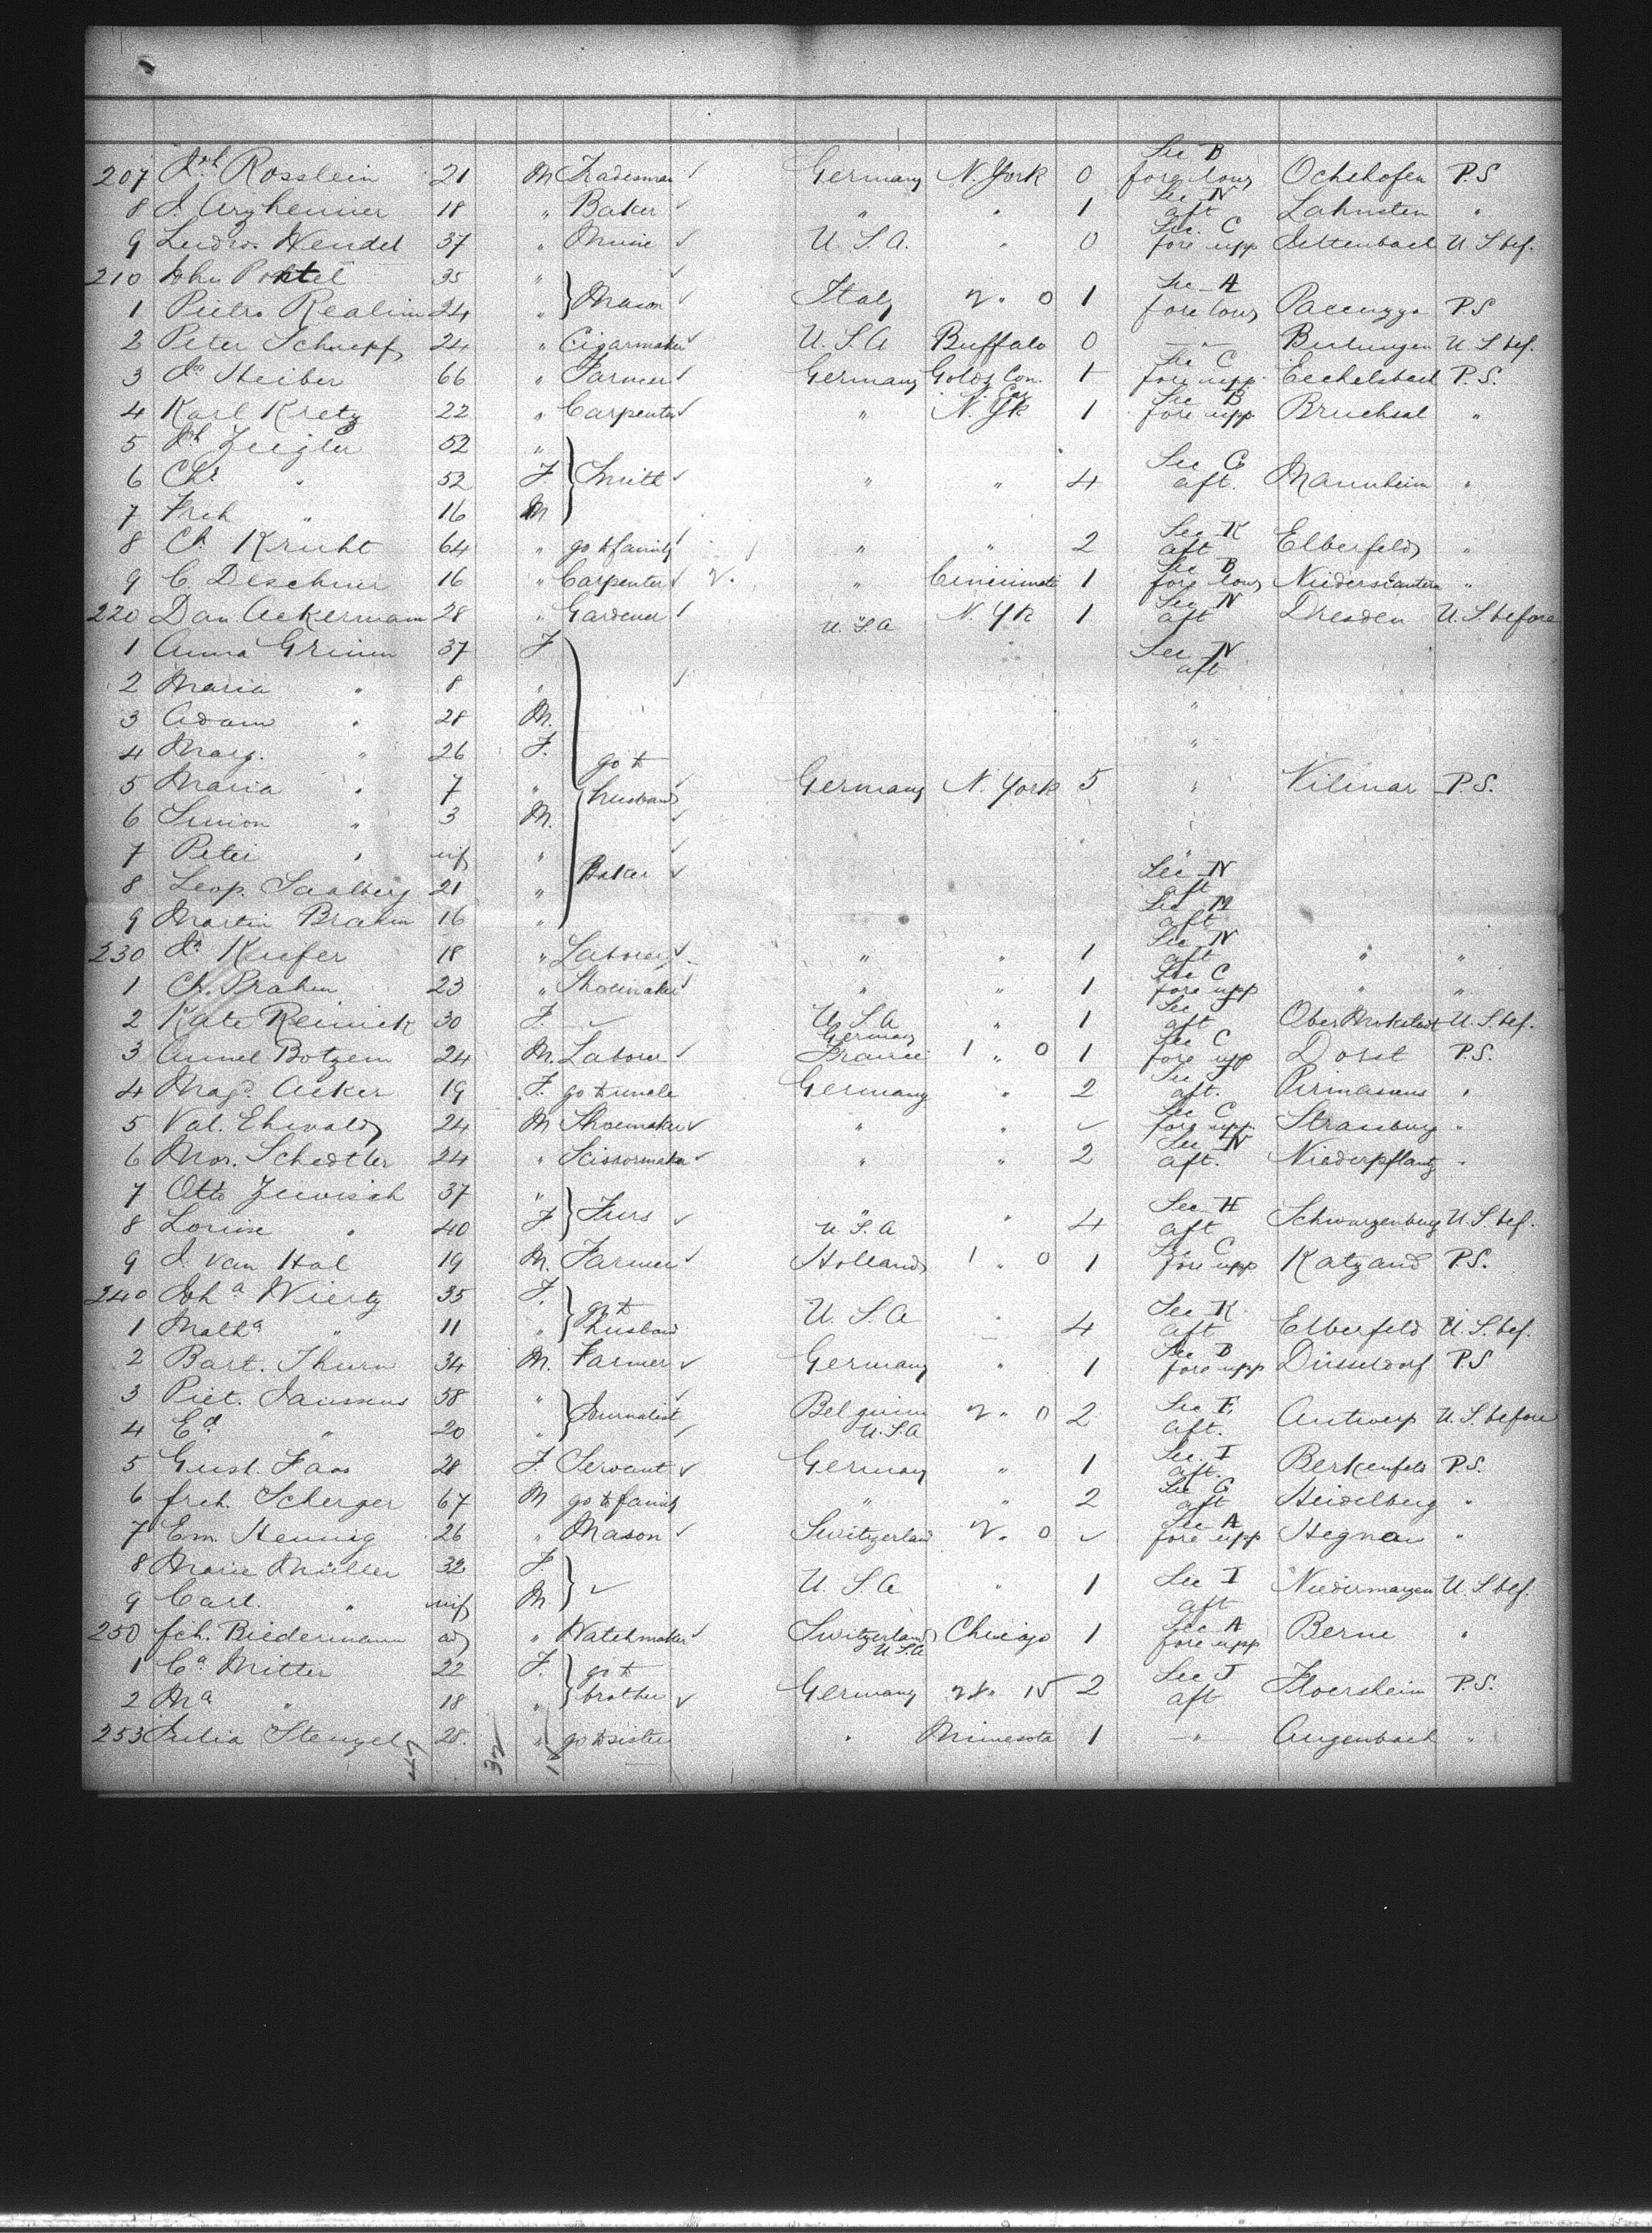 207 Jos. Rosslein 21 M Tradesman ✓ Germany N. York 0 Sec B fore low Ochshofen P.S
8 J. 18 " Baker ✓ " " 1 Sec N aft Lahnsten "
9 Ludw. Wendel 37 " Music ✓ U.S.A. " 0 Sec. C fore upp Settenbach U.S bef.
210 John 35 " ✓
1 Pietro Realini 24 " } Mason ✓ Italy 2 " 0 1 Sec A fore low P.S
2 Peter Schnepf 24 " Cigarmaker ✓ U.S.A Buffalo 0 — " — U.S bef.
3 Heiber 66 " Farmer ✓ Germany 1 Sec C fore upp Eechelsbach P.S.
4 Karl Kretz 22 " Carpenter ✓ " N. Yk 1 Sec B fore upp Bruchsal "
5 Zeigler 52 "
6 Chr " 52 F } Smith ✓ " " 4 Sec G aft. Mannheim "
7 Frch " 16 M
8 Ch. Krucht 64 " go to family ✓ " " 2 Sec K aft Elberfeld "
9 C. Deschner 16 " Carpenter ✓ 2. " Cincinnati 1 Sec B fore low "
220 Dan Ackermann 28 " Gardener ✓ " U.S.A N. Yk 1 Sec N aft Dresden U.S. before
1 Anna Grimm 37 F " Sec N aft
2 Maria " 8 " ✓
3 Adam " 28 M. "
4 Marg. " 26 F. go to "
5 Maria " 7 " husband ✓ Germany N. York 5 " Vilmar P.S.
6 Simon " 3 M. ✓ "
7 Peter " inf " ✓ "
8 Leop. Saalberg 21 " Baker ✓ Sec N aft
9 Martin Brahm 16 " Sec M aft
230 Kiefer 18 " Laborer ✓ " " 1 Sec N aft " "
1 Ch. Brahm 23 " Shoemaker ✓ " " 1 Sec C fore upp " "
2 Kate Reinick 30 F. ✓ U.S.A " 1 Sec J aft Ober Mokstadt U.S. bef.
3 Botzem 24 M. Laborer ✓ Germany France 1 " 0 1 Sec C fore upp Dorst P.S.
4 Magd. Acker 19 F. go to uncle Germany " 2 Sec J aft. Pirmasens "
5 Val. Ehwald 24 M Shoemaker ✓ " " ✓ Sec C fore upp. Strassburg "
6 Mor. Schedtler 24 " Scissormaker ✓ " " 2 Sec N aft. Niederpflantz "
7 Otto 37 "
8 Louise " 40 F } Furs ✓ " U.S.A " 4 Sec H aft Schwarzenburg U.S. bef.
9 J. van Hal 19 M. Farmer ✓ Holland 1 " 0 1 Sec C fore upp Katzand P.S.
240 Joha Wiertz 35 F. } go to
1 Matha " 11 " husband U.S.A " 4 Sec K aft Elberfeld U.S. bef.
2 Bart. Thurn 34 M. Farmer ✓ Germany " 1 Sec B fore upp Düsseldorf P.S
3 Piet. Janssens 58 " ✓
4 Ed " 20 " } Journalist ✓ Belgium U.S.A 2 " 0 2 Sec F aft. Antwerp U.S. before
5 Gust. Faas 28 F. Servant ✓ Germany " 1 Sec. I aft. Berkenfeld P.S.
6 frch. Scherger 67 M go to family " " 2 Sec G aft Heidelberg "
7 Em. Hennig 26 " Mason ✓ Switzerland 2 " 0 ✓ Sec A fore upp Hegnau "
8 Marie Müller 32 F.
9 Carl. " inf M } ✓ U.S.A " 1 Sec I aft U.S. bef.
250 fch. Biedermann ad " Watchmaker ✓ Switzerland U.S.A Chicago 1 Sec A fore upp Berne "
1 Ca Mitter 22 F. } go to
2 Ma " 18 " brother ✓ Germany 28 " 15 2 Sec J aft Floersheim P.S.
253 Julia Stenzel 28. " go to sister " Minesota 1 — " — Augenbach "
47 32 15